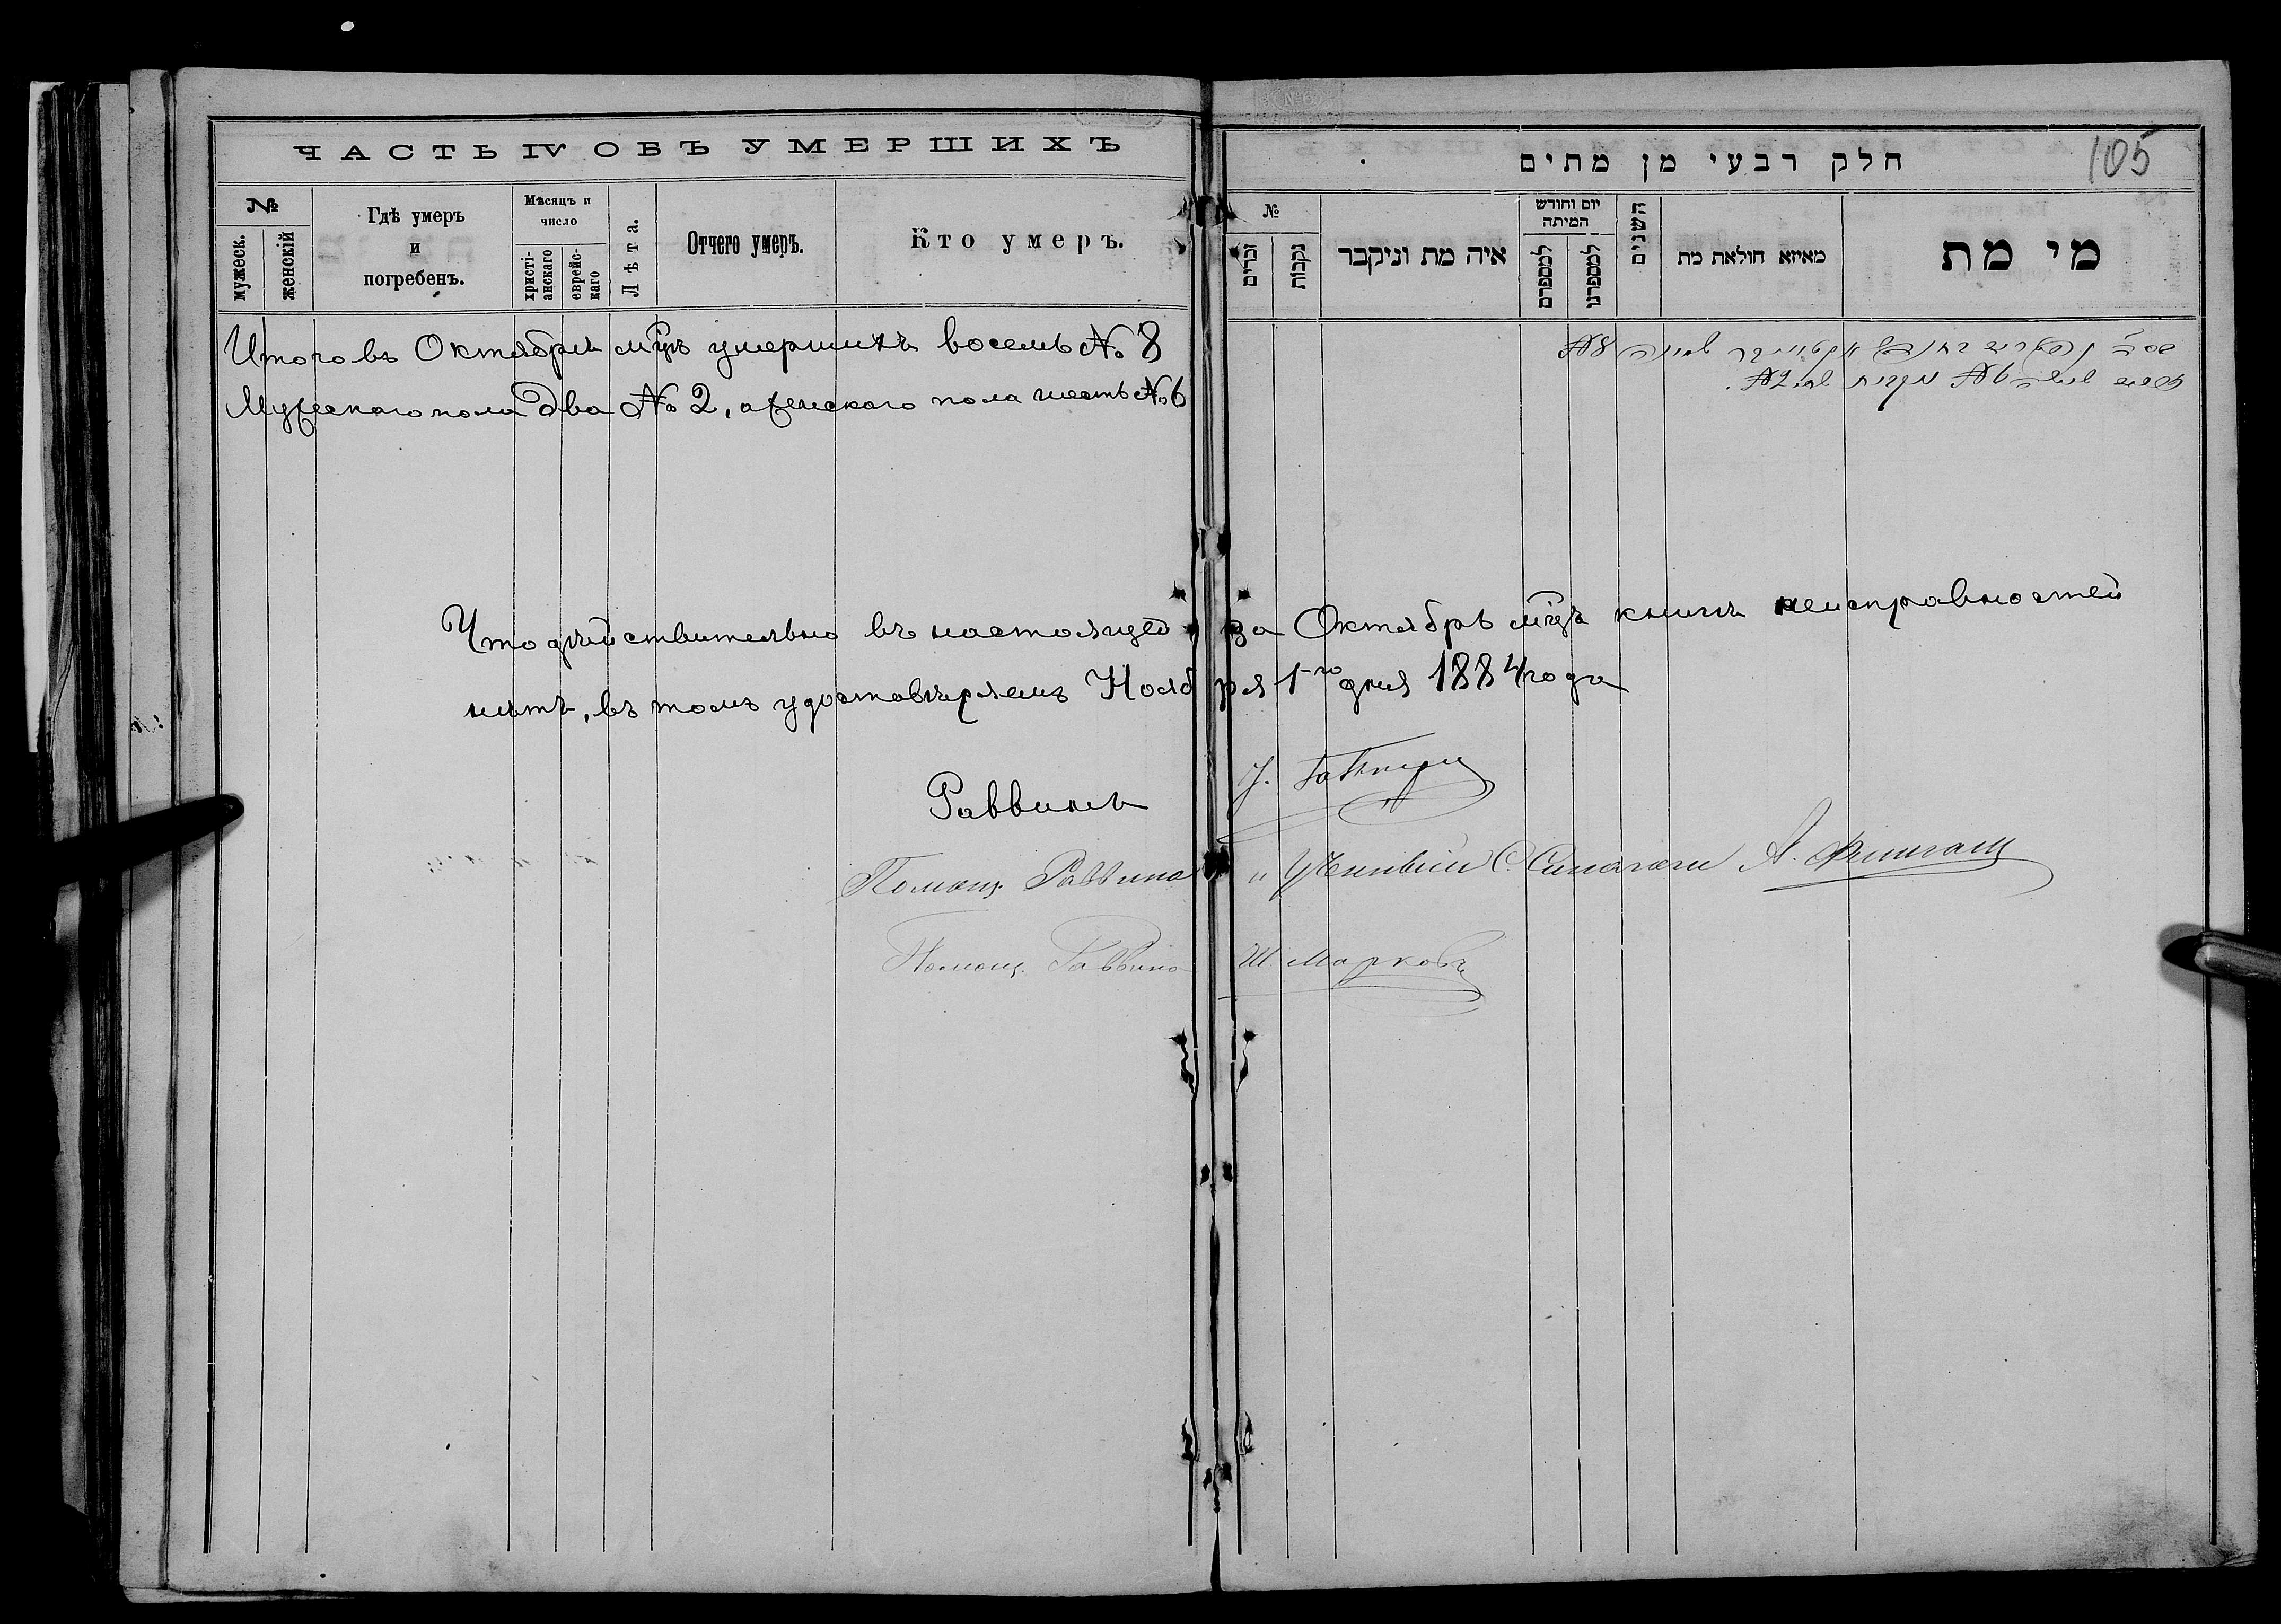 ЧАСТЬ IV ОБЪ УМЕРШИХЪ
№
мужеск.
женскій
Гдѣ умеръ
и
погребенъ.
Мѣсяцъ и
число
христі-
анскаго
еврейс-
каго
Лѣта.
Отчего умеръ.
Кто умеръ.
Итого въ Октябрѣ мцѣ умершихъ восемь № 8
Мужескаго пола два № 2, а женскаго пола шесть № 6
חלק רבעי מן מתים
105
№
זכרים
נקבות
איה מת וניקבר
יום וחודש
המיתה
למספרם
למספרנו
השנים
מאיזא חולאת מת
מי מת
№ 8
№ 6 № 2
Что дѣйствительно въ настоящей за Октябрь мцъ книгѣ неисправностей
нѣтъ, въ томъ удостовѣряемъ Ноября 1-го дня 1884 года
Раввинъ
Помощ. Раввина и Ученый С. Синагоги А.
Помощ. Раввина Ш. Марковъ